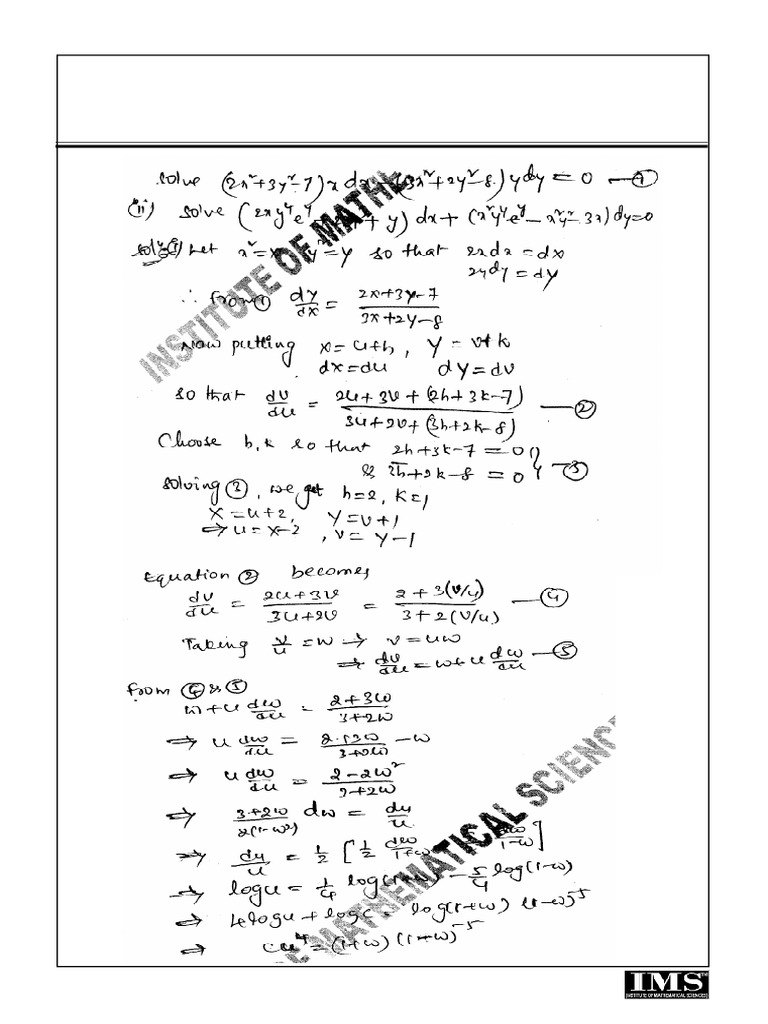 solve (2x²+3y²-7)x dx - (3x²+2y²-8) y dy = 0 —①
(ii) solve (2xy⁴e^y + y) dx + (x²y⁴e^y - x²y² - 3x) dy = 0
Let x² = X y² = Y so that 2x dx = dX
2y dy = dY
∴ from ① dy/dx = 2x+3y-7/3x+2y-8
Now putting x = u+h, y = v+k
dx = du dy = dv
so that dv/du = 2u+3v+(2h+3k-7)/3u+2v+(3h+2k-8) —②
Choose h, k so that 2h+3k-7 = 0
& 3h+2k-8 = 0 —③
solving ③, we get h=2, k=1
X = u+2, Y = v+1
⇒ u = x-2, v = y-1
Equation ② becomes
dv/du = 2u+3v/3u+2v = 2+3(v/u)/3+2(v/u) —④
Taking v/u = w → v = uw
⇒ dv/du = w+u dw/du —⑤
from ④ & ⑤
w+u dw/du = 2+3w/3+2w
⇒ u dw/du = 2+3w/3+2w - w
⇒ u dw/du = 2-2w²/3+2w
⇒ 3+2w/2(1-w²) dw = du/u
⇒ du/u = 1/2 [1/2 dw/1+w dw/1-w]
⇒ log u = 1/4 log(1+w) - 5/4 log(1-w)
⇒ 4log u + log c = log(1+w) (1-w)⁻⁵
⇒ cu⁴ = (1+w) (1-w)⁻⁵
INSTITUTE OF MATHE
MATHEMATICAL SCIENC
IMS
INSTITUTE OF MATHEMATICAL SCIENCES